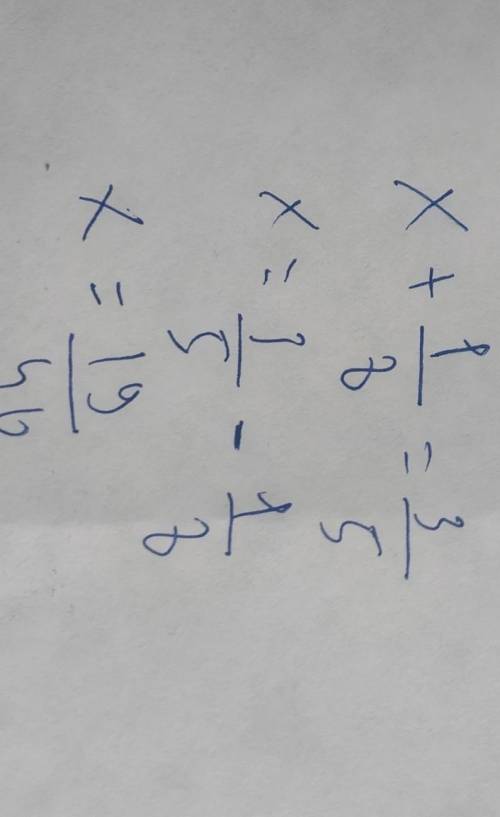 x + 1/8 = 3/5
x = 3/5 - 1/8
x = 19/40